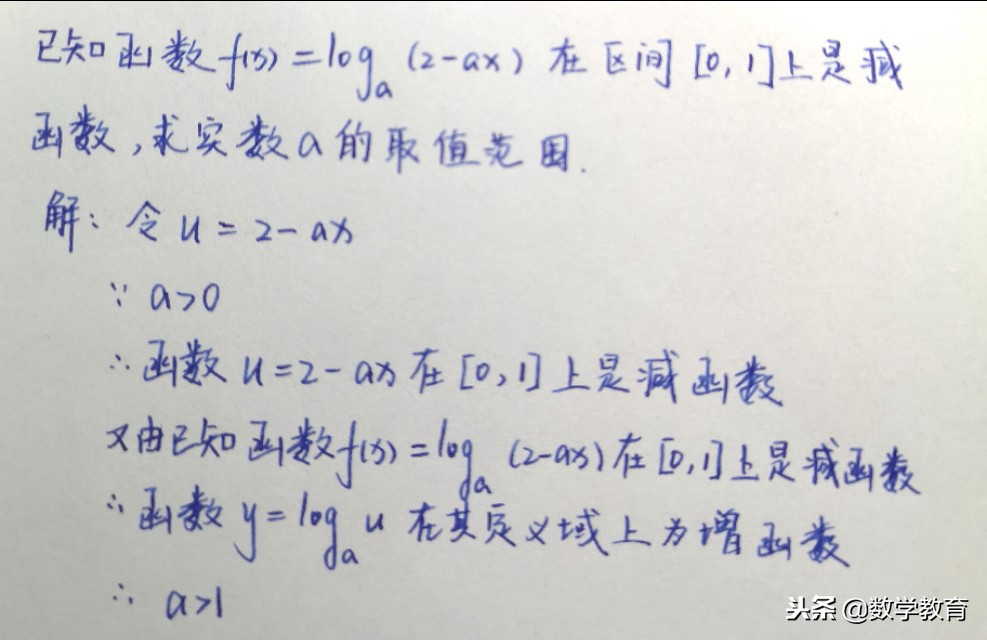 已知函数f(x)=logₐ(2-ax)在区间[0,1]上是减
函数,求实数a的取值范围.
解:令u=2-ax
∵a>0
∴函数u=2-ax在[0,1]上是减函数
又由已知函数f(x)=logₐ(2-ax)在[0,1]上是减函数
∴函数y=logₐu在其定义域上为增函数
∴a>1
头条@数学教育